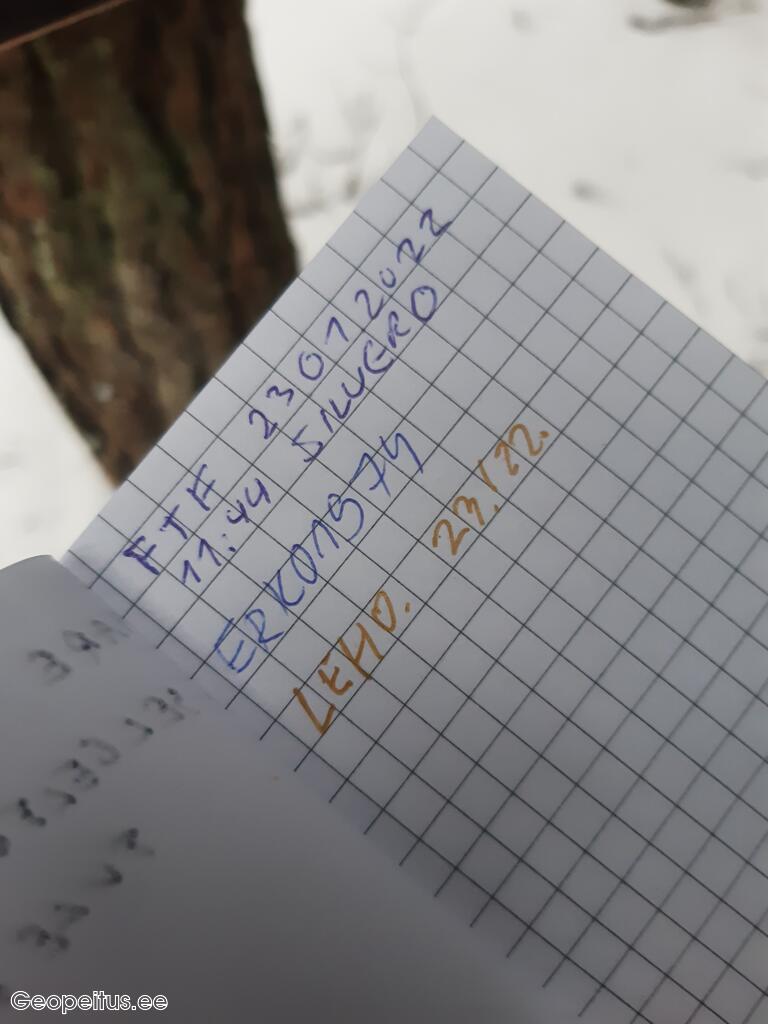 FTF 23 01 2022
11:44 SILVERO
ERKO1974
LEHO. 23.1.22.
Geopeitus.ee